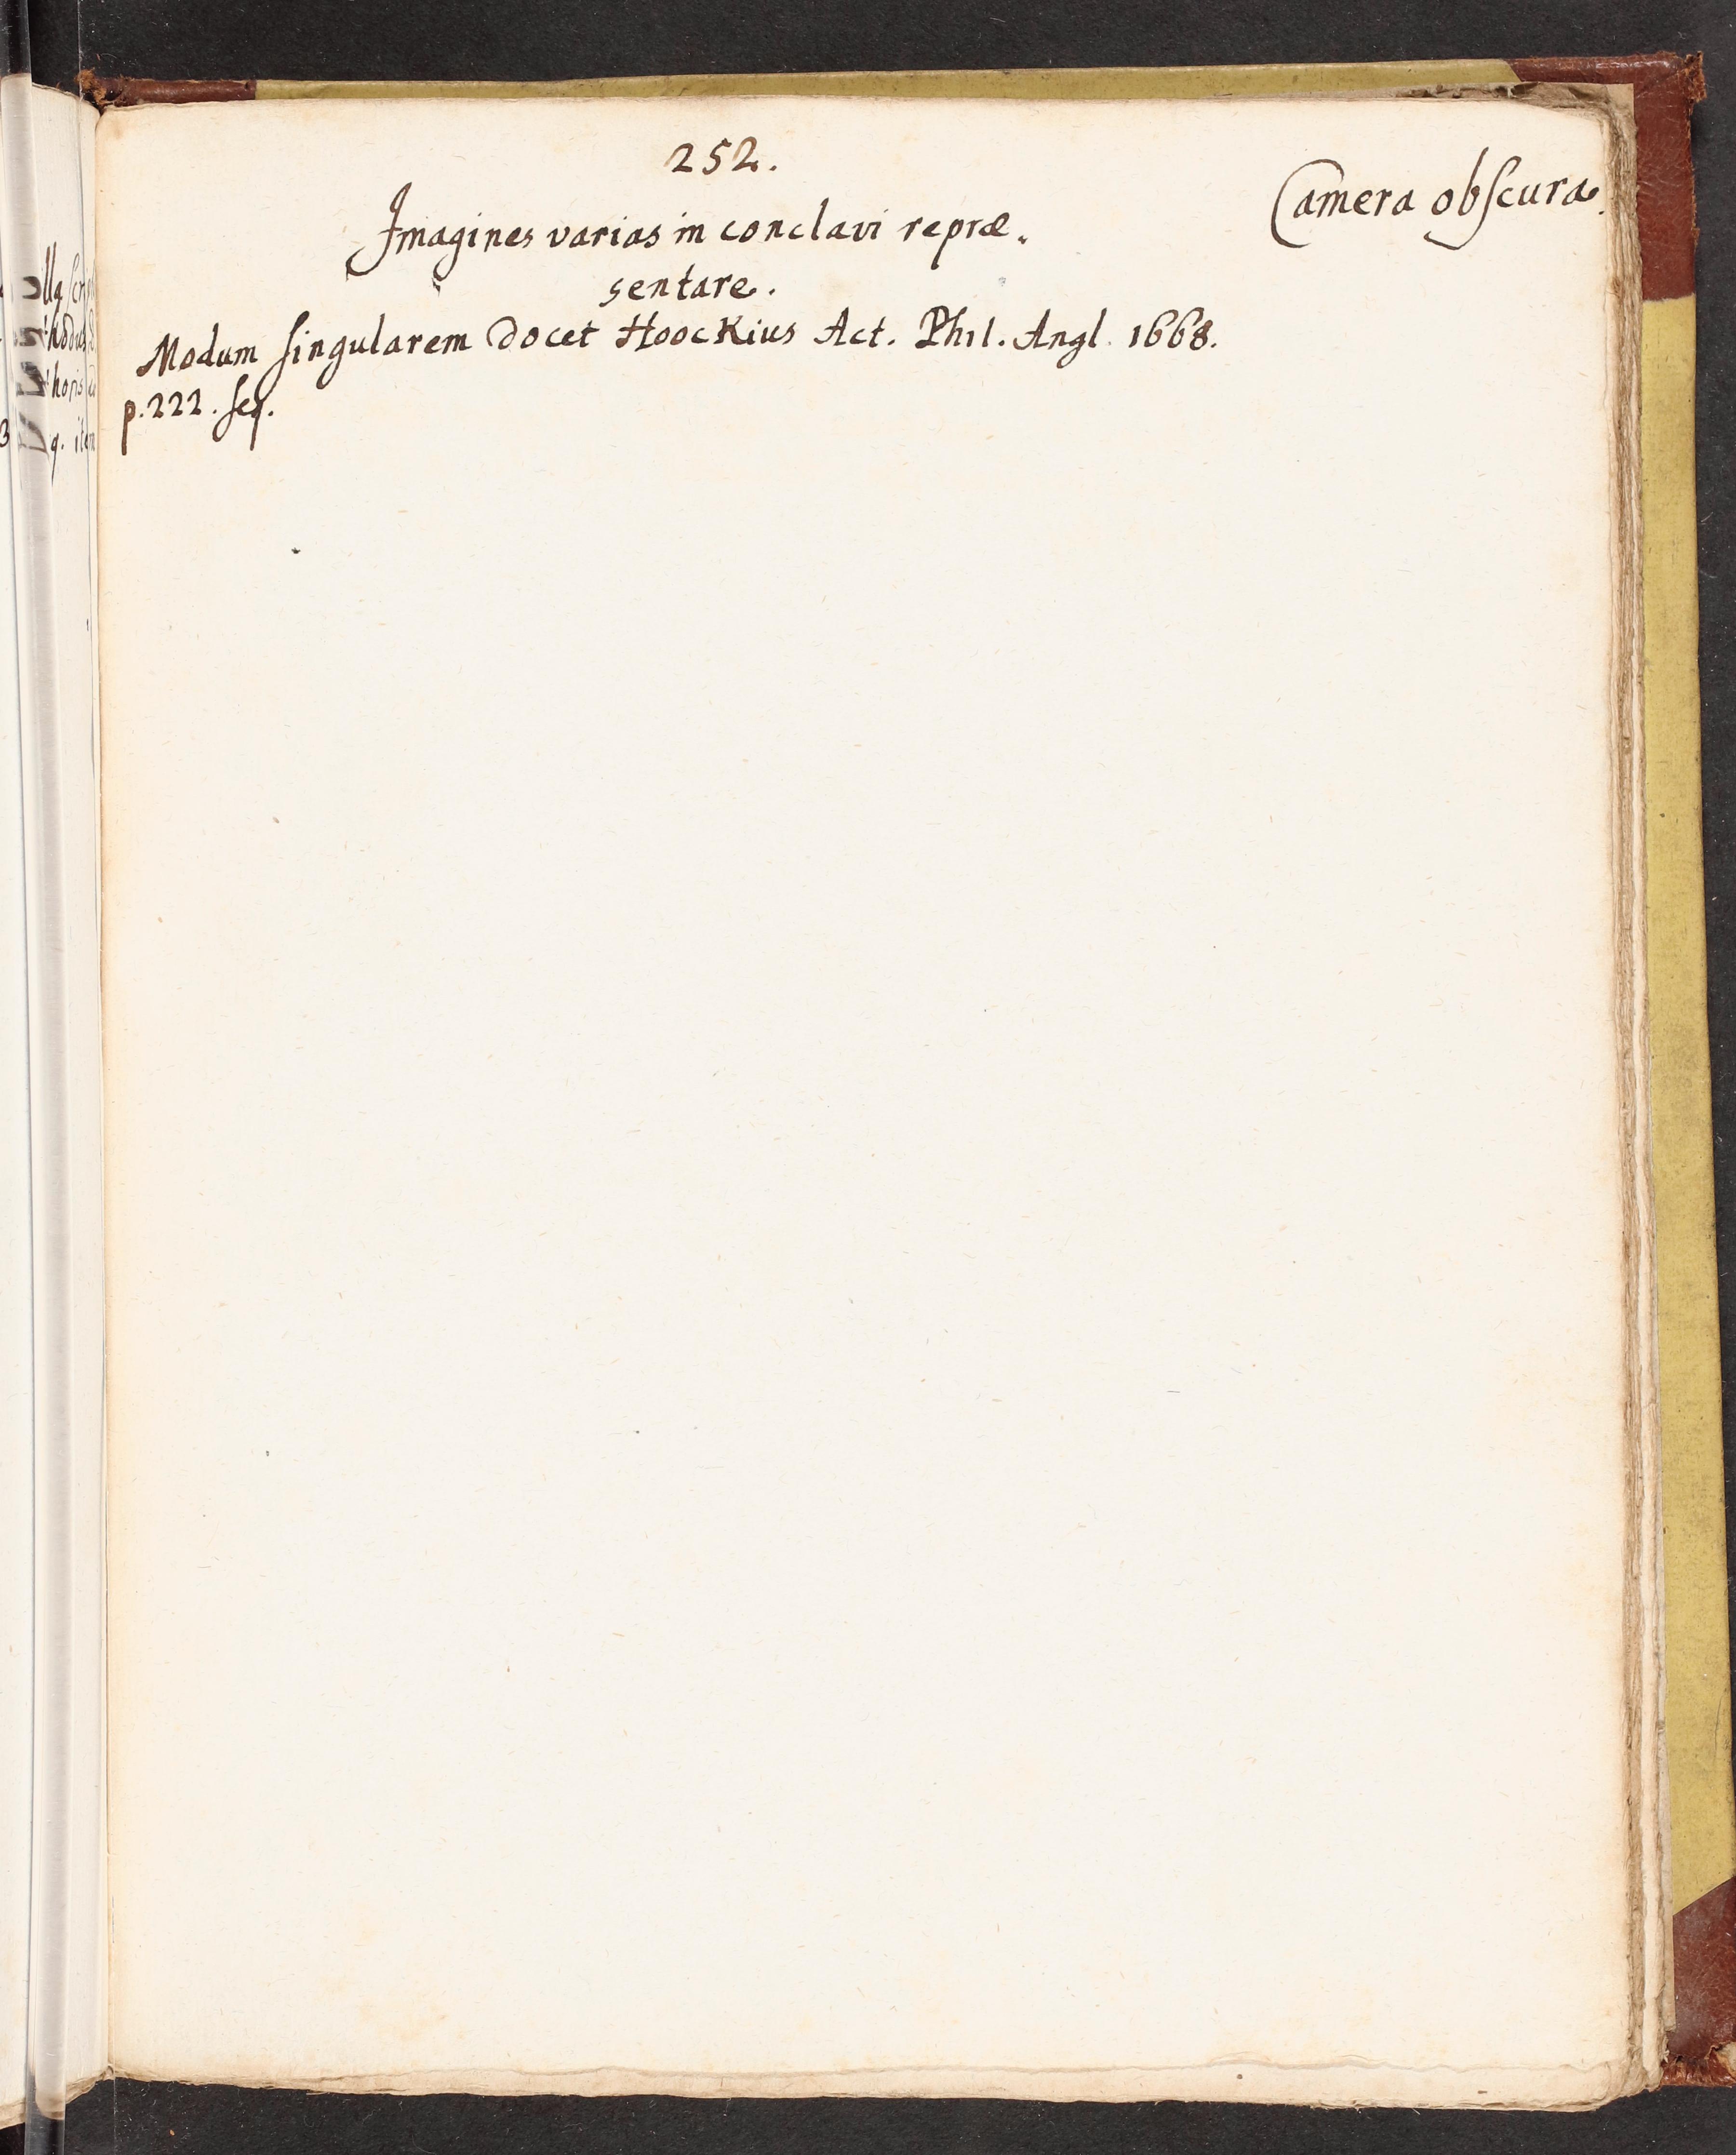 252.
Camera obscura.
Imagines varias in conclavi repræ„
sentare.
Modum singularem docet Hoockius Act. Phil. Angl. 1668.
p. 222. seq.